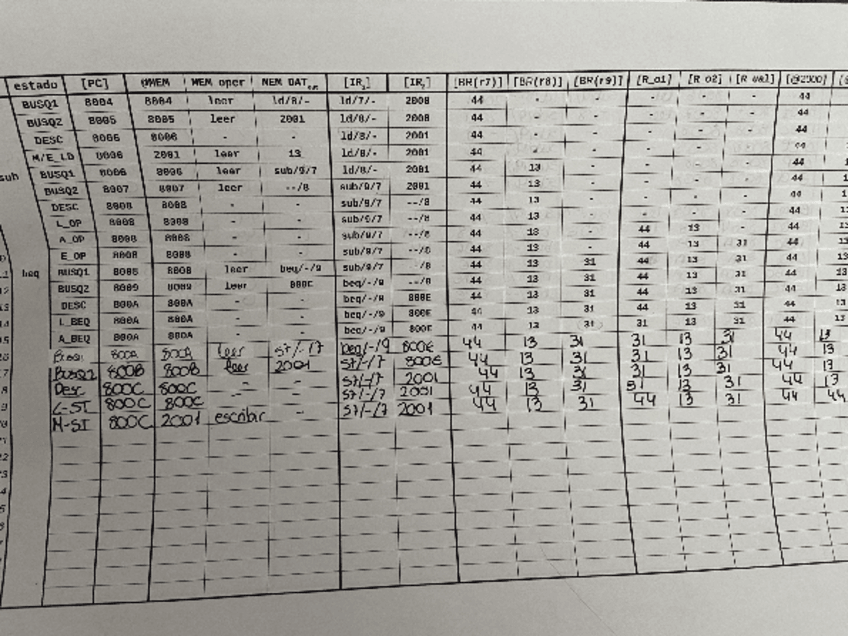 estado [PC] @MEM MEM oper MEM DAT [IR₁] [IR₂] [BR(r7)] [BR(r8)] [BR(r9)] [R_o1] [R_o2] [R_val] [@2000]
BUSQ1 8004 8004 leer ld/8/- ld/7/- 2000 44 - - - - - 44
BUSQ2 8005 8005 leer 2001 ld/8/- 2000 44 - - - - - 44
DESC 8006 8006 - - ld/8/- 2001 44 - - - - - 44
M/E_LD 8006 2001 leer 13 ld/8/- 2001 44 - - - - - 44
sub BUSQ1 8006 8006 leer sub/9/7 ld/8/- 2001 44 13 - - - - 44
BUSQ2 8007 8007 leer --/8 sub/9/7 2001 44 13 - - - - 44
DESC 8008 8008 - - sub/9/7 --/8 44 13 - - - - 44
L_OP 8008 8008 - - sub/9/7 --/8 44 13 - - - - 44
A_OP 8008 8008 - - sub/9/7 --/8 44 13 - 44 13 - 44
E_OP 8008 8008 - - sub/9/7 --/8 44 13 - 44 13 31 44
beq BUSQ1 8008 8008 leer beq/-/9 sub/9/7 --/8 44 13 31 44 13 31 44
BUSQ2 8009 8009 leer 800E beq/-/9 --/8 44 13 31 44 13 31 44
DESC 800A 800A - - beq/-/9 800E 44 13 31 44 13 31 44
L_BEQ 800A 800A - - beq/-/9 800E 44 13 31 44 13 31 44
A_BEQ 800A 800A - - beq/-/9 800E 44 13 31 31 13 31 44
Busq1 800A 800A leer st/-/7 beq/-/9 800E 44 13 31 31 13 31 44 13
Busq2 800B 800B leer 2001 st/-/7 800E 44 13 31 31 13 31 44 13
Desc 800C 800C - - st/-/7 2001 44 13 31 31 13 31 44 13
L-ST 800C 800C - - st/-/7 2001 44 13 31 31 13 31 44 13
M-ST 800C 2001 escribir - st/-/7 2001 44 13 31 44 13 31 44 44